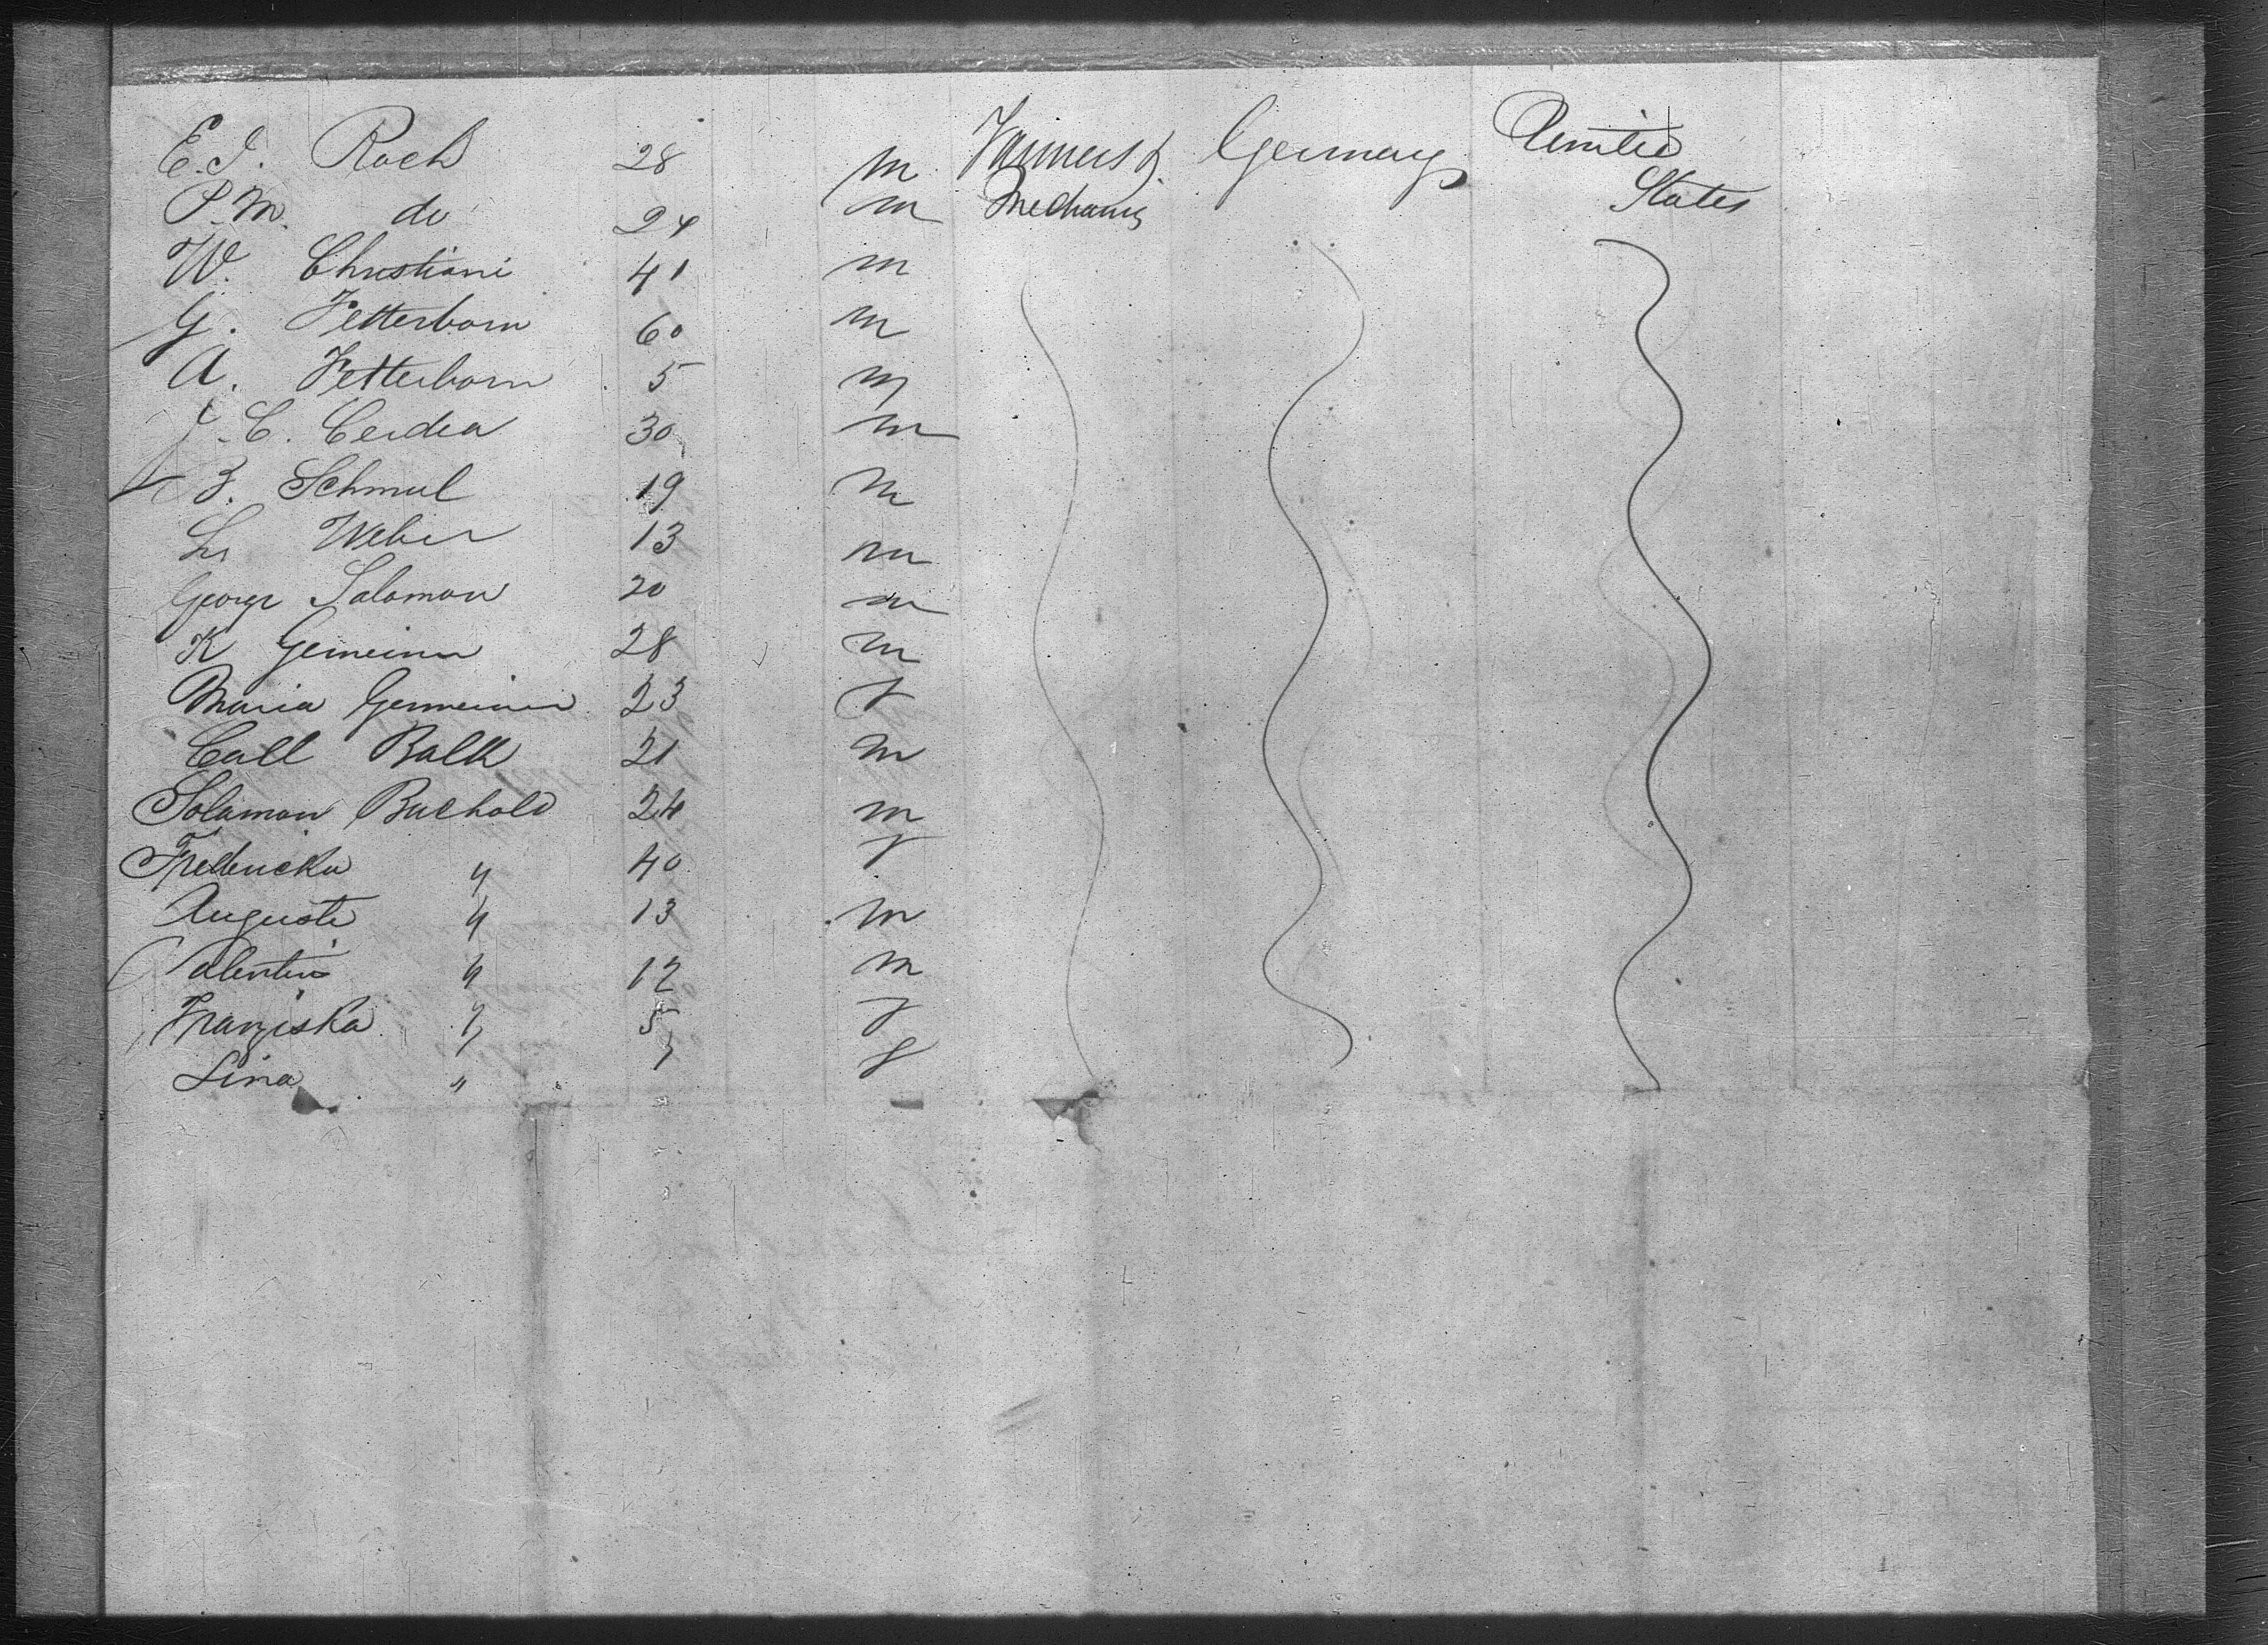 E. J. Roch 28 m Farmers & Germany United
P. M. do 24 m Mechanics States
W. Christiani 41 m
G. Fetterborn 60 m
A. Fetterborn 5 m
J. C. Cerdea 30 m
B. Schmul 19 m
Ls Weber 13 m
George Salomon 20 m
K Gemeiner 28 m
Maria Germeiner 23 f
Call Balk 21 m
Solamon Buchold 24 m
Fredericka " 40 f
Auguste " 13 m
Valentin " 12 m
Franziska " 5 f
Lina " 7 f